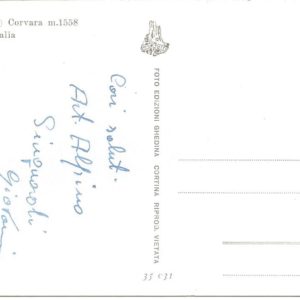 ) Corvara m.1558
alia
Cari saluti
Art. Alpino
Giovan
FOTO EDIZIONI GHEDINA CORTINA RIPROD. VIETATA
33 531